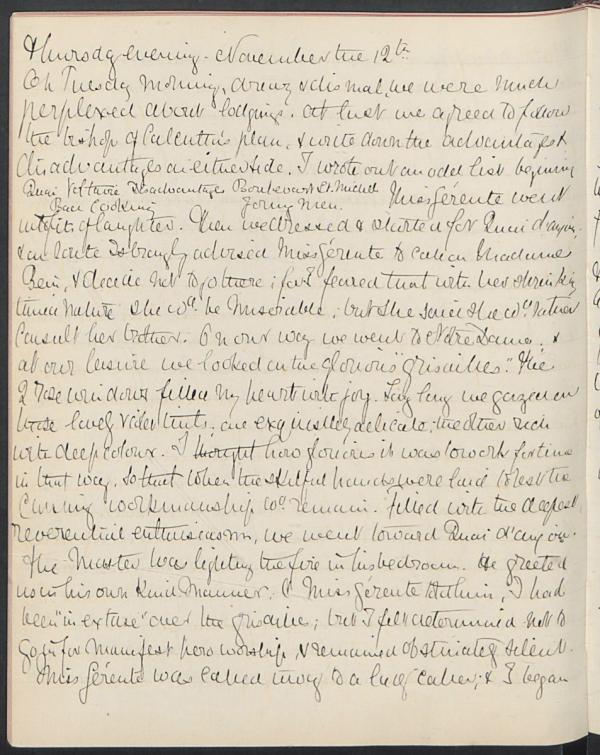 Thursday evening. November the 12th
On Tuesday morning, dreary & dismal, we were much
perplexed about lodgings. At last we agreed to follow
the bishop of Calcutta's plan, & write down the advantages &
disadvantages on either side. I wrote out an odd list beginning
Quai Voltaire Disadvantages Boulevart St. Michel
Bad Cooking Young Men. Miss Gérente went
into fits of laughter. Then we dressed & started for Quai d'anjou.
& en route I strongly advised Miss Gérente to call on Madame
& decide not to go there; for I feared that with her shrinking
timid nature she wd. be miserable; but she said she wd. rather
consult her brother. On our way we went to Notre Dame, &
at our leisure we looked on the glorious "grisailles." The
2 rose windows filled my heart with joy. Long long we gazed on
those lovely violet tints. one exquisitely delicate; the other rich
with deep colour. I thought how glorious it was to work for time
in that way, so that when the skilful hands were laid to rest the
cunning workmanship wd. remain. Filled with the deepest
reverential enthusiasm, we went toward Quai d'anjou.
The Master was lighting the fire in his bedroom. He greeted
us in his own kind manner. Miss Gérente told him, I had
been "in extase" over the grisailles; but I felt determined not to
go in for manifest hero worship, & remained obstinately silent.
Miss Gérente was called away to a lady caller; & I began